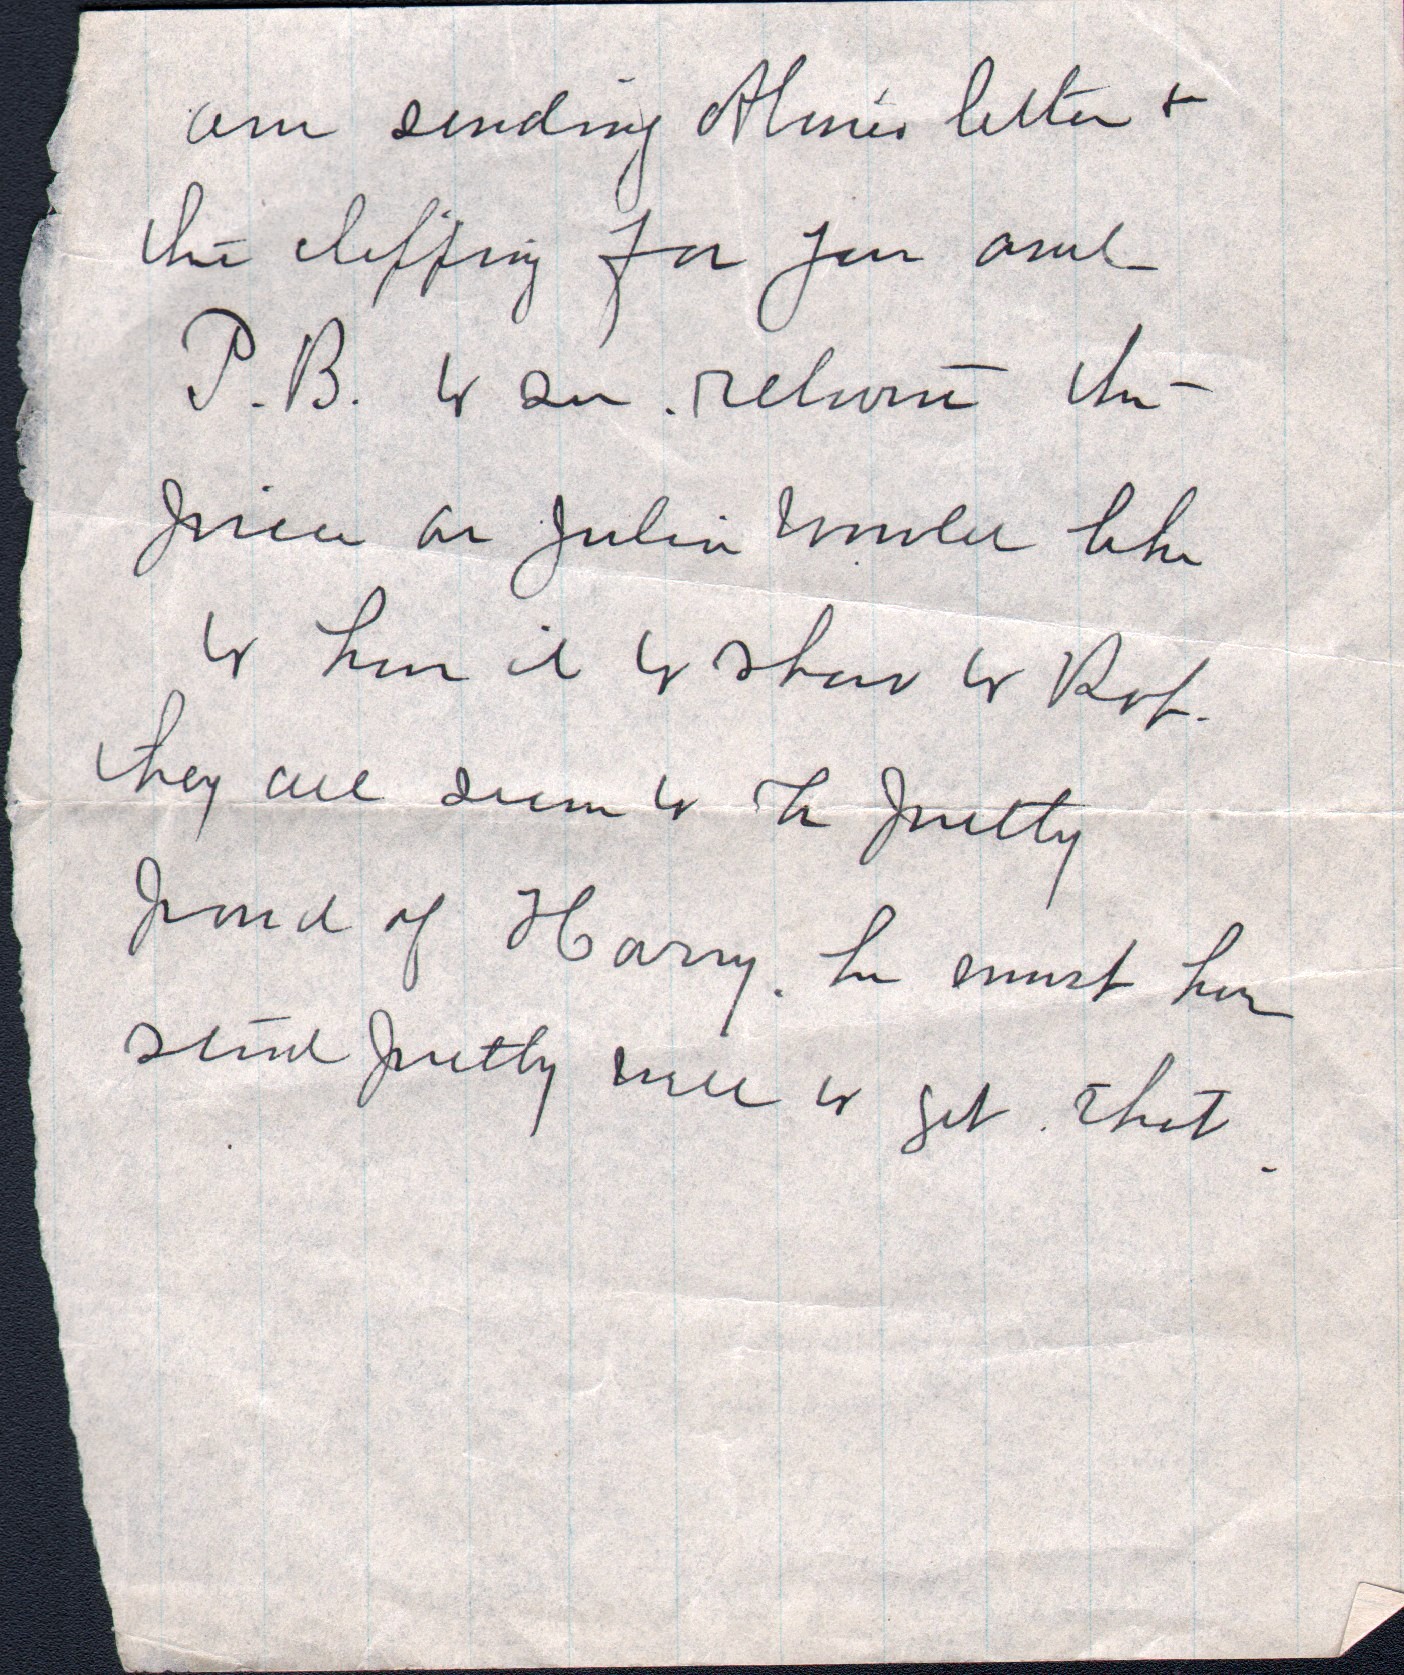 am sending Alma's letter +
the clipping for you and
P.B. to see. return the
piece as Julia would like
to have it to show to Rob.
they all seem to be pretty
proud of Harry. he must have
stood pretty well to get that.